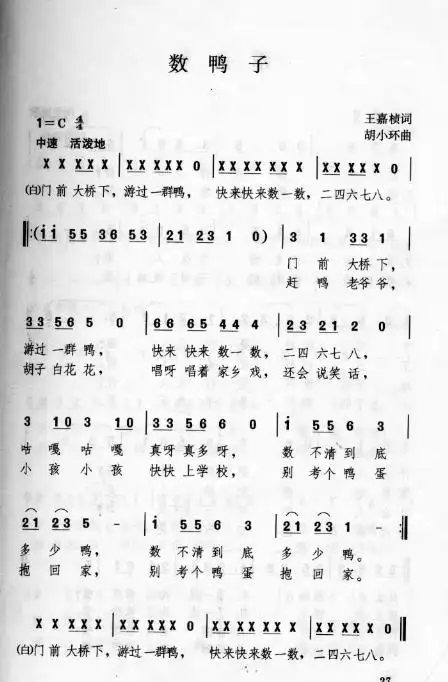 数鸭子
王嘉桢词
1=C 4/4
胡小环曲
中速 活泼地
X X X X X | X X X X X 0 | X X X X X X X | X X X X X 0 |
(白)门前大桥下，游过一群鸭， 快来快来数一数，二四六七八。
‖:(i i 5 5 3 6 5 3 | 2 1 2 3 1 0) | 3 1 3 3 1 |
门 前 大桥下，
赶 鸭 老爷爷，
3 3 5 6 5 0 | 6 6 6 5 4 4 4 | 2 3 2 1 2 0 |
游过一群 鸭， 快来 快来 数一数， 二四 六七 八，
胡子 白花 花， 唱呀 唱着 家乡 戏， 还会 说笑 话，
3 1 0 3 1 0 | 3 3 5 6 6 0 | i 5 5 6 3 |
咕 嘎 咕 嘎 真呀 真多 呀， 数 不清 到 底
小 孩 小 孩 快快 上学 校， 别 考个 鸭 蛋
2 1 2 3 5 - | i 5 5 6 3 | 2 1 2 3 1 - :‖
多 少 鸭， 数 不清 到 底 多 少 鸭。
抱 回 家， 别 考个 鸭 蛋 抱 回 家。
X X X X X | X X X X X 0 | X X X X X X X | X X X X X 0 ‖
(白)门前大桥下，游过一群鸭， 快来快来数一数，二四六七八。
27